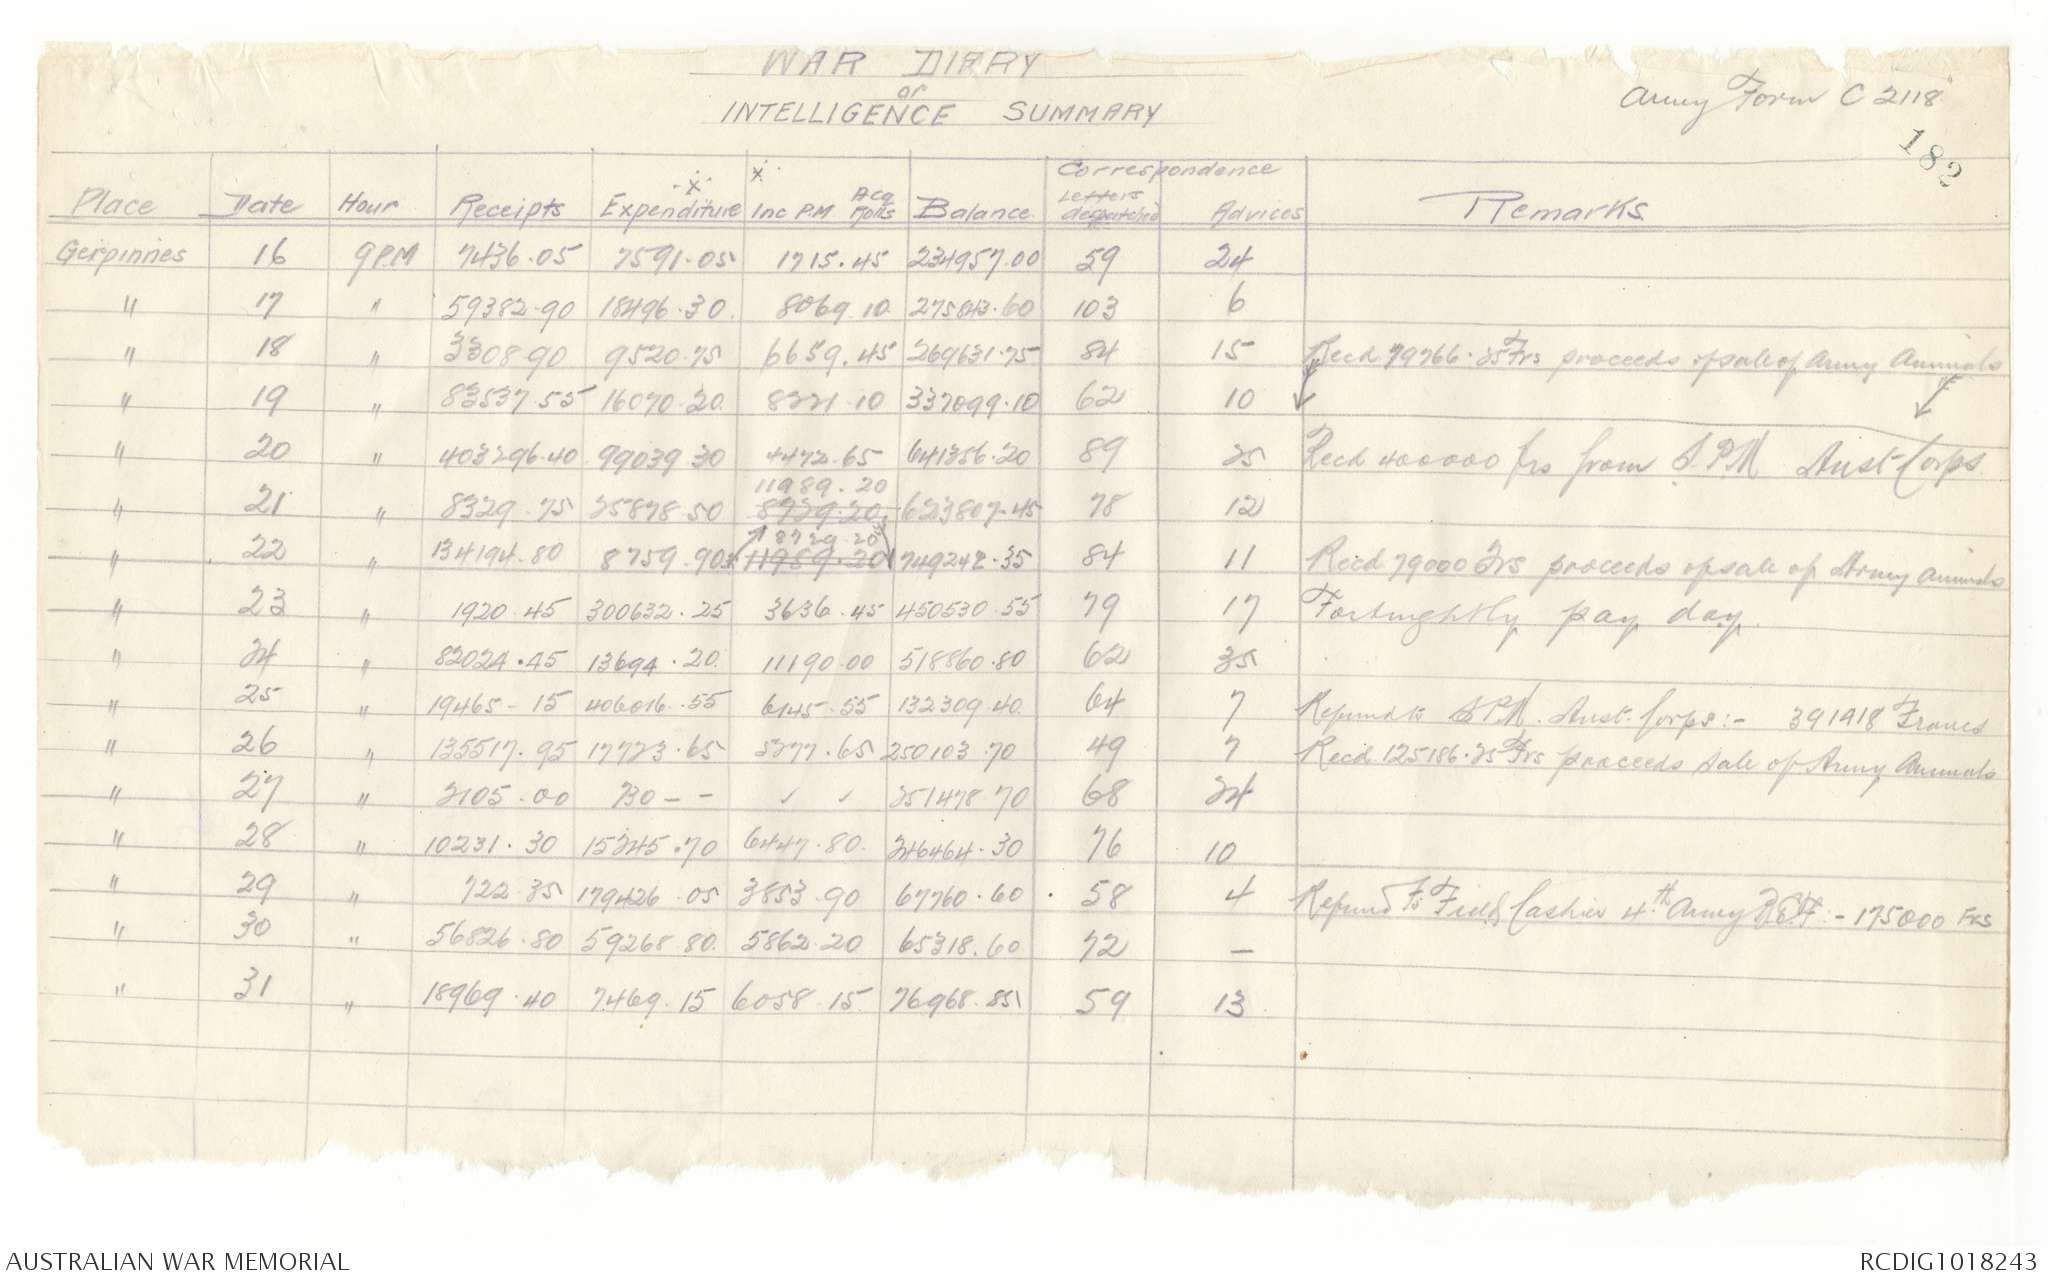 WAR DIARY
or
INTELLIGENCE SUMMARY
Army Form C 2118
182
Place Date Hour Receipts Expenditure x Inc P.M Acq Rolls x Balance Correspondence Letters despatched Advices Remarks
Gerpinnes 16 9 P.M 7436.05 7591.05 1715.45 234957.00 59 24
" 17 " 59382.90 18496.30 8069.10 275843.60 103 6
" 18 " 3308.90 9520.75 6659.45 269631.75 84 15 Recd 79766.25 Frs proceeds of sale of Army Animals
" 19 " 83537.55 16070.20 8221.10 337099.10 62 10
" 20 " 403296.40 99039.30 4472.65 641356.20 89 25 Recd 400000 frs from D.P.M Aust Corps
" 21 " 8329.75 25878.50 11989.20 8729.20 623807.45 78 12
" 22 " 134194.80 8759.90 8729.20 11989.20 749242.35 84 11 Recd 79000 Frs proceeds of sale of Army animals
" 23 " 1920.45 300632.25 3636.45 450530.55 79 17 Fortnightly pay day.
" 24 " 82024.45 13694.20 11190.00 518860.80 62 35
" 25 " 19465-15 406016.55 6145.55 132309.40 64 7 Refund to D.P.M. Aust. Corps:- 391418 Francs
" 26 " 135517.95 17723.65 5277.65 250103.70 49 7 Recd 125186.25 Frs proceeds sale of Army Animals
" 27 " 2105.00 730 - - ✓ ✓ 251478.70 68 24
" 28 " 10231.30 15245.70 6447.80 246464.30 76 10
" 29 " 722.35 179426.05 3853.90 67760.60 58 4 Refund To Field Cashier 4th Army B.E.F:- 175000 Frs
" 30 " 56826.80 59268.80 5862.20 65318.60 72 -
" 31 " 18969.40 7469.15 6058.15 76968.85 59 13
AUSTRALIAN WAR MEMORIAL
RCDIG1018243